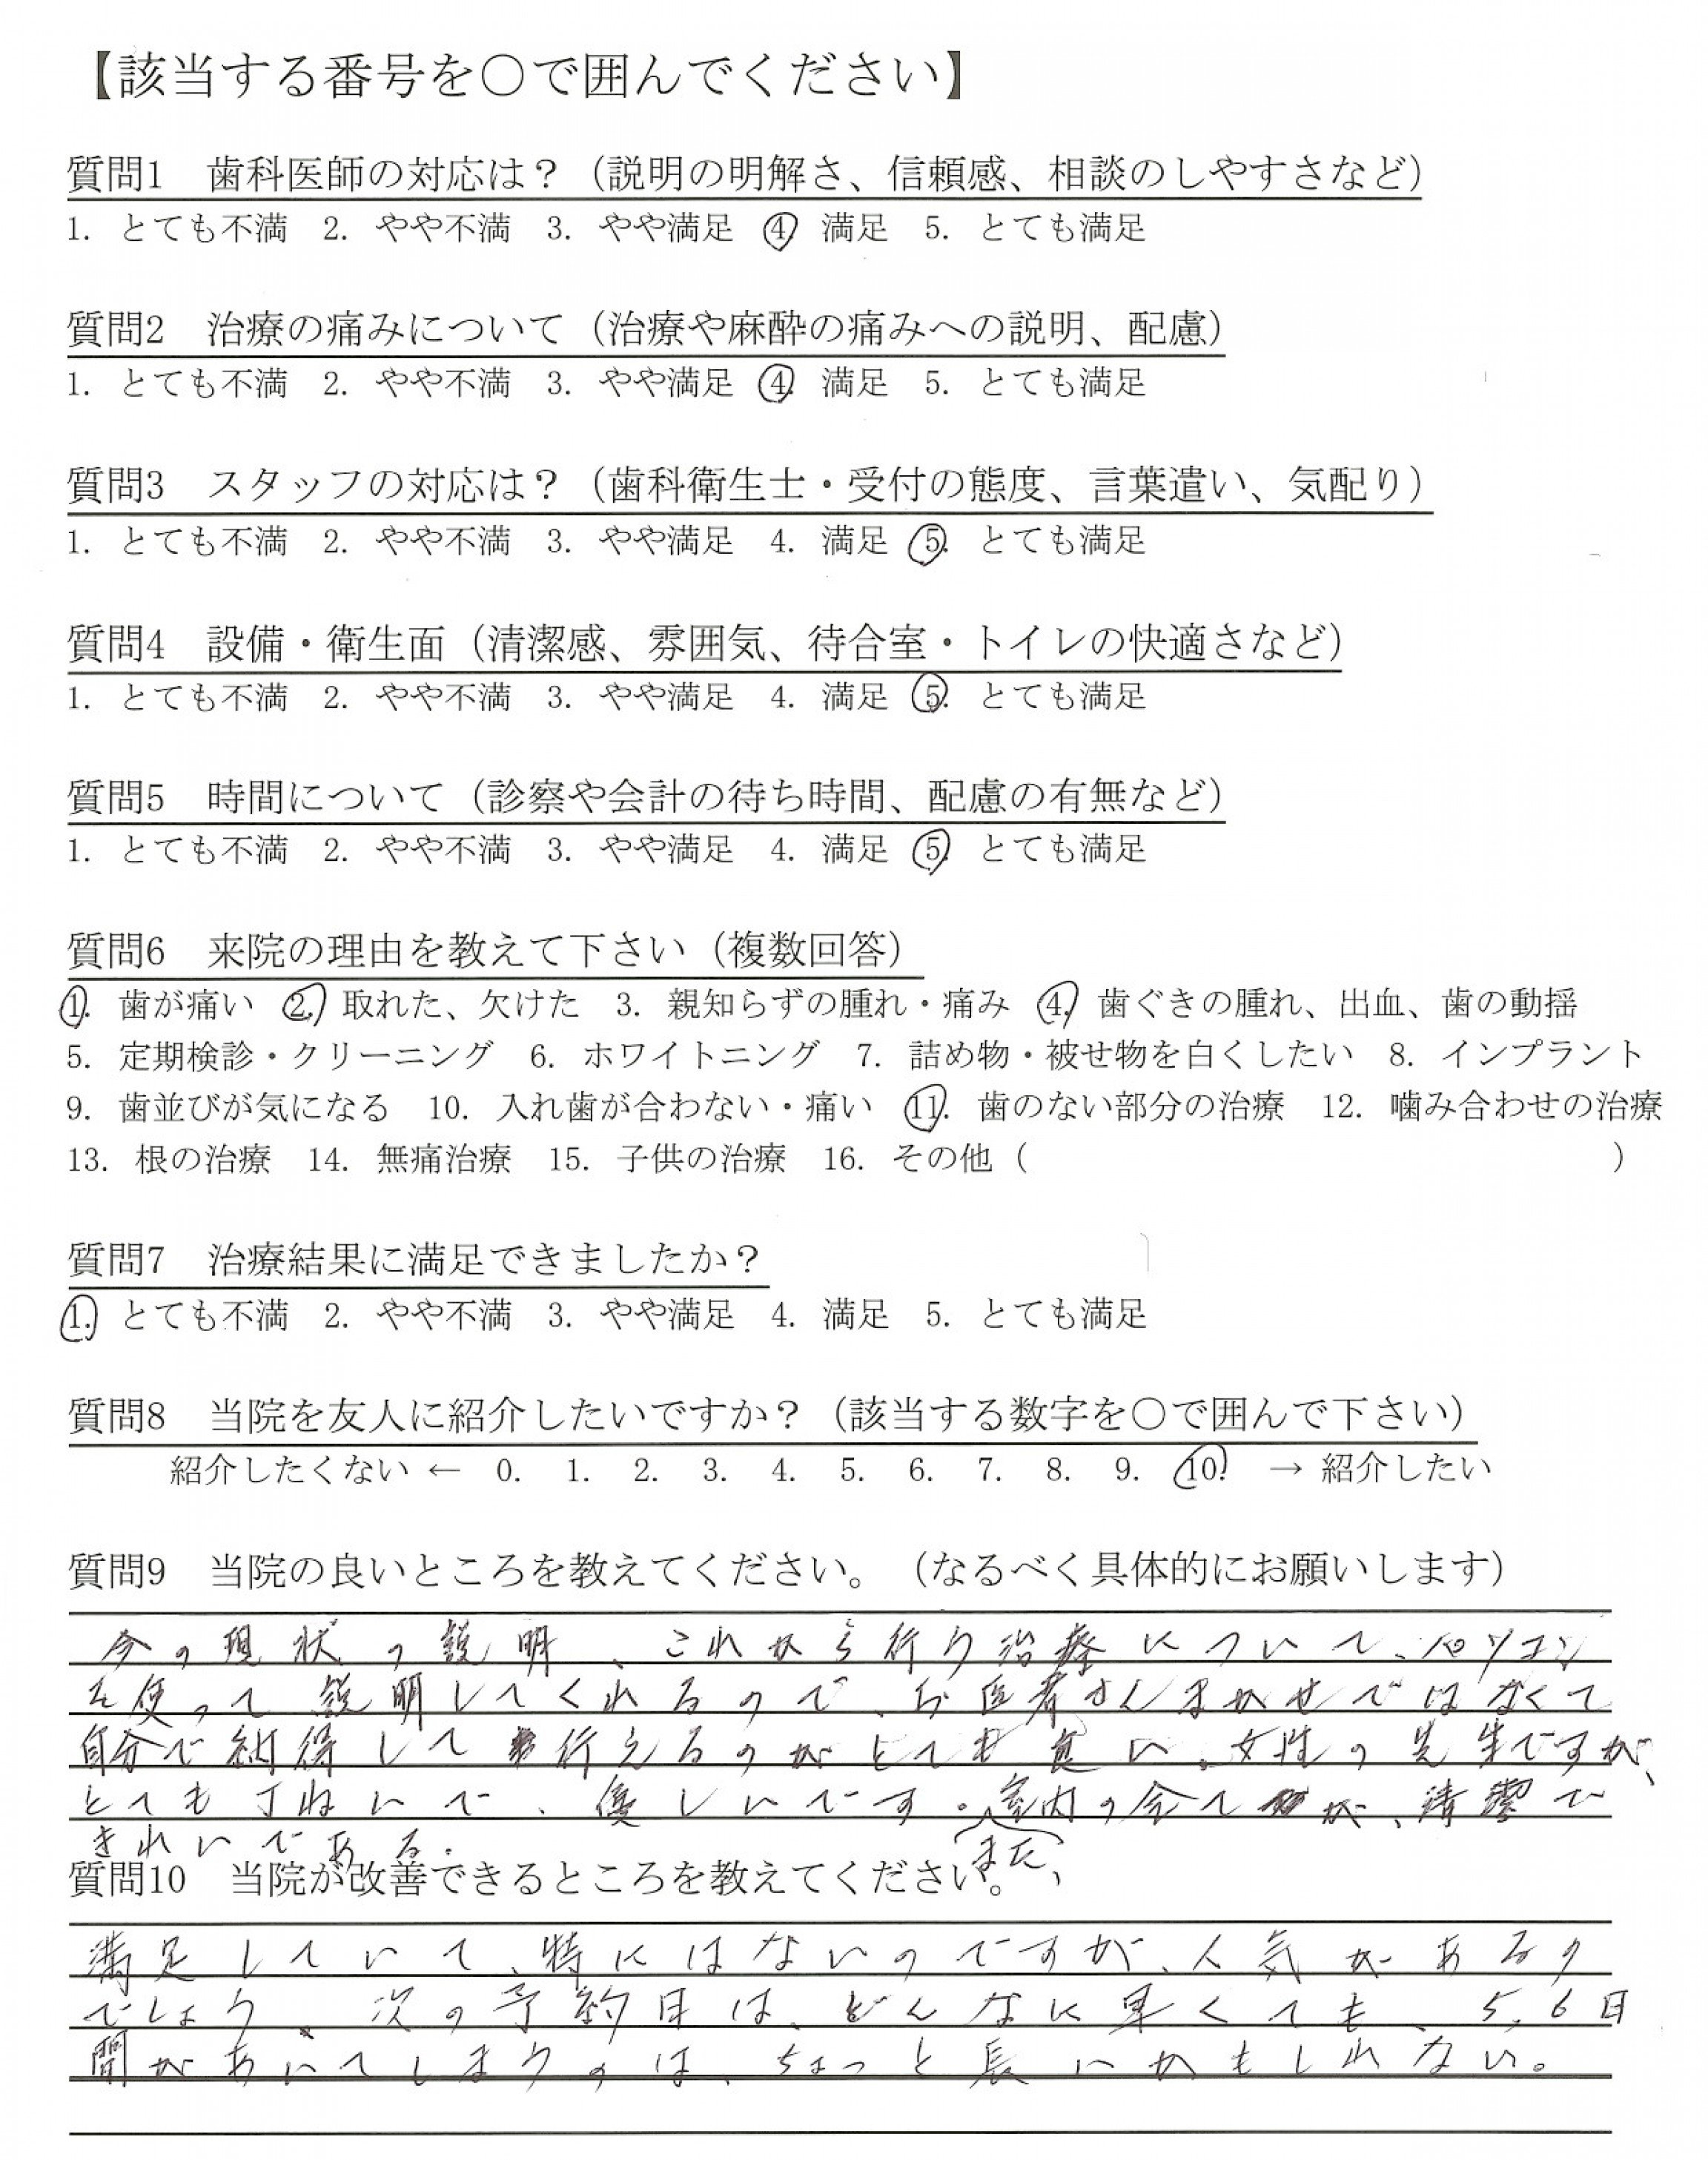 【該当する番号を○で囲んでください】
質問1　歯科医師の対応は？（説明の明解さ、信頼感、相談のしやすさなど）
1. とても不満　2. やや不満　3. やや満足　4. 満足　5. とても満足
質問2　治療の痛みについて（治療や麻酔の痛みへの説明、配慮）
1. とても不満　2. やや不満　3. やや満足　4. 満足　5. とても満足
質問3　スタッフの対応は？（歯科衛生士・受付の態度、言葉遣い、気配り）
1. とても不満　2. やや不満　3. やや満足　4. 満足　5. とても満足
質問4　設備・衛生面（清潔感、雰囲気、待合室・トイレの快適さなど）
1. とても不満　2. やや不満　3. やや満足　4. 満足　5. とても満足
質問5　時間について（診察や会計の待ち時間、配慮の有無など）
1. とても不満　2. やや不満　3. やや満足　4. 満足　5. とても満足
質問6　来院の理由を教えて下さい（複数回答）
1. 歯が痛い　2. 取れた、欠けた　3. 親知らずの腫れ・痛み　4. 歯ぐきの腫れ、出血、歯の動揺
5. 定期検診・クリーニング　6. ホワイトニング　7. 詰め物・被せ物を白くしたい　8. インプラント
9. 歯並びが気になる　10. 入れ歯が合わない・痛い　11. 歯のない部分の治療　12. 噛み合わせの治療
13. 根の治療　14. 無痛治療　15. 子供の治療　16. その他（　　　　　　　　　）
質問7　治療結果に満足できましたか？
1. とても不満　2. やや不満　3. やや満足　4. 満足　5. とても満足
質問8　当院を友人に紹介したいですか？（該当する数字を○で囲んで下さい）
紹介したくない ←　0.　1.　2.　3.　4.　5.　6.　7.　8.　9.　10.　→ 紹介したい
質問9　当院の良いところを教えてください。（なるべく具体的にお願いします）
今の現状の説明、これから行う治療について、パソコン
を使って説明してくれるので、お医者さんまかせではなくて
自分で納得して行えるのがとても良い。女性の先生ですが、
とても丁ねいで、優しいです。また、室内の全てが、清潔で
きれいである。
質問10　当院が改善できるところを教えてください。
満足していて、特にはないのですが、人気があるの
でしょう、次の予約日は、どんなに早くても、5,6日
間があいてしまうのは、ちょっと長いかもしれない。